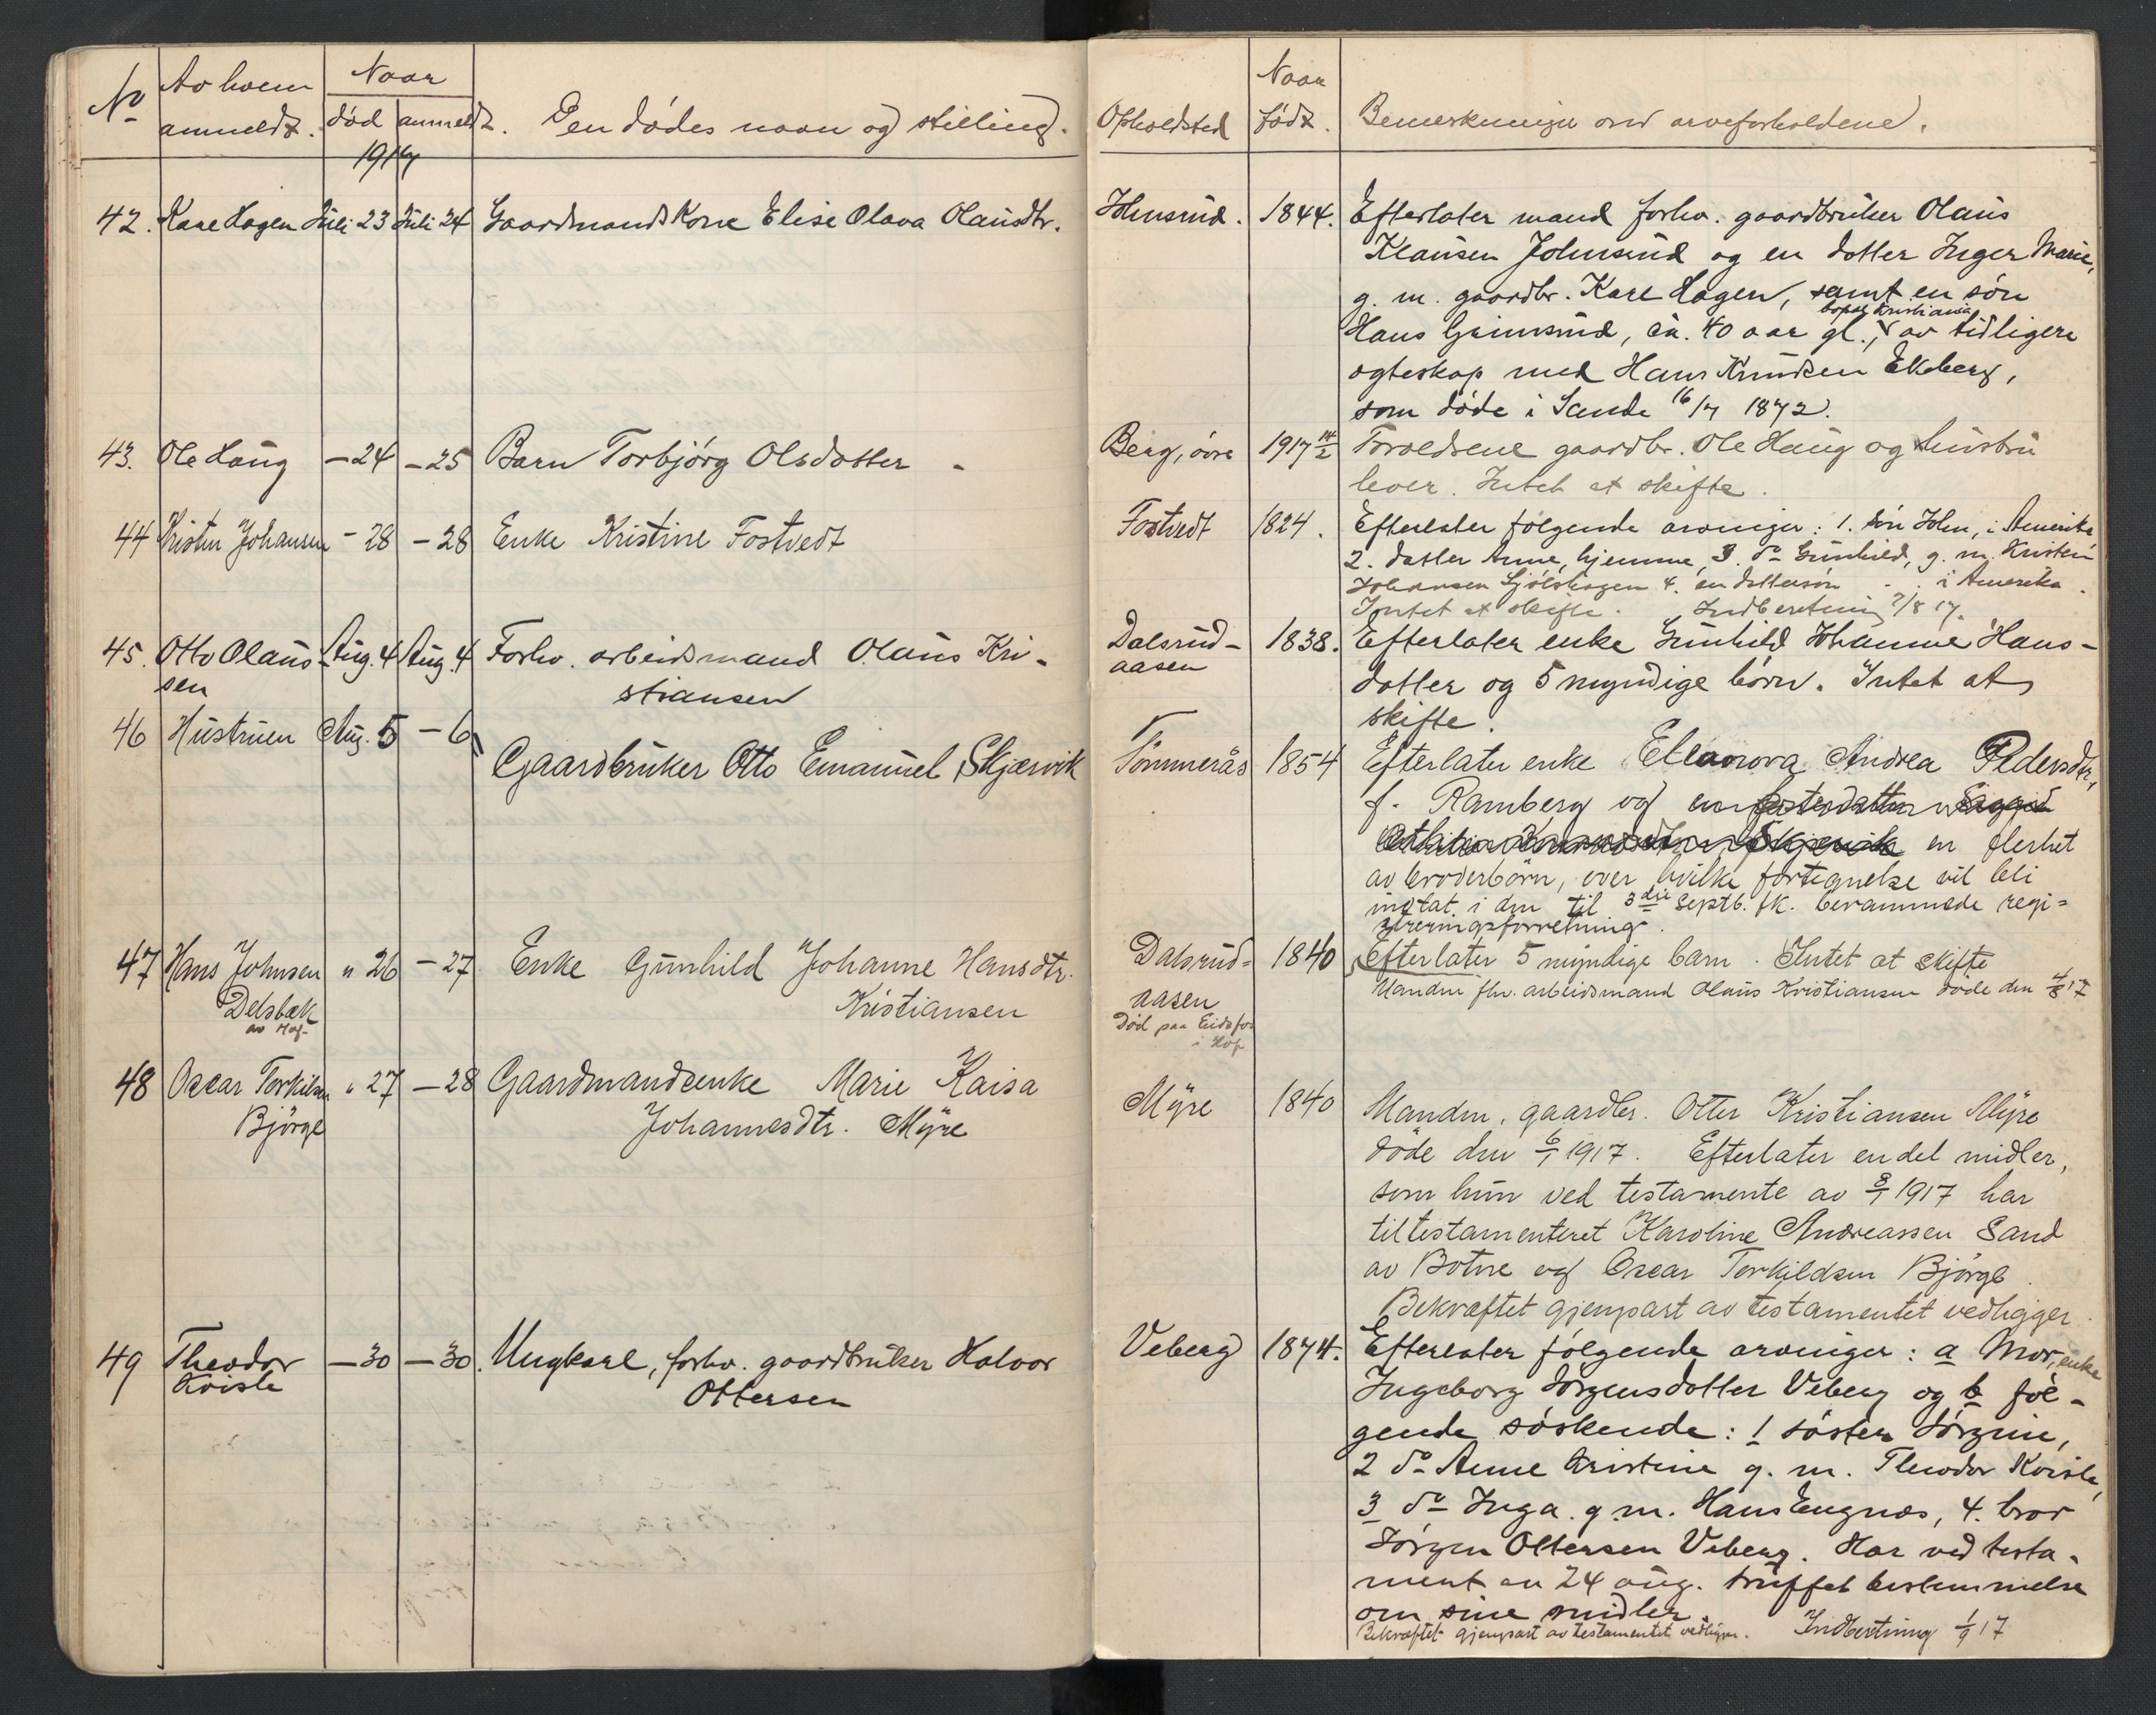 No
Av hvem
anmeldt.
Naar
død
anmeldt.
1917
Den dødes navn og stilling.
Opholdsted
Naar
født.
Bemerkninger om arveforholdene.
42. Kare Hagen Juli 23 Juli 24 Gaardmandskone Elise Olava Olausdtr.
Johnsrud. 1844. Efterlater mand forhv. gaardbruker Olaus
Klausen Johnsrud og en dotter Inger Marie,
g. m. gaardbr. Kare Hagen, samt en søn
bopæl Kristiania
Hans Grimsrud, ca. 40 aar gl., av tidligere
egteskap med Hans Knudsen Ekeberg,
som døde i Sande 16/7 1872.
43. Ole Haug – 24 – 25 Barn Torbjørg Olsdotter -
Berg, øvre 1917 14/2 Foreldrene gaardbr. Ole Haug og hustru
lever. Intet at skifte.
44 Kristen Johansen – 28 – 28 Enke Kristine Fostvedt
Fostvedt 1824. Efterlater følgende arvinger: 1. søn John, i Amerika
2. datter Anne, hjemme, 3. do Gunhild, g. m. Kristen
Johansen 4. en dattersøn - . i Amerika.
Intet at skifte. Indberetning 7/8 17.
45. Otto Olaus-
sen
Aug. 4 Aug. 4 Forhv. arbeidsmand Olaus Kri-
stiansen
Dalsrud-
aasen
1838. Efterlater enke Gunhild Johanne Hans-
datter og 5 myndige børn. Intet at
skifte.
46 Hustruen Aug. 5 – 6
Gaardbruker Otto Emanuel Skjærvik
Tømmerås 1854 Efterlater enke Eleanora Andrea Pedersdtr,
f. Ramberg og en fosterdatter
Skjærvik en flerhet
av broderbørn, over hvilke fortegnelse vil bli
indtat i den til 3die septb. fk. berammede regi=
streringsforretning.
47 Hans Johnsen
Delsbæk
av Hof
" 26 – 27 Enke Gunhild Johanne Hansdtr.
Kristiansen
Dalsrud=
aasen
Død paa Eidsfos
i Hof
1840 Efterlater 5 myndige barn. Intet at skifte
Manden fhv. arbeidsmand Olaus Kristiansen døde den 4/8 17
48 Oscar Torkildsen
Bjørge
" 27 – 28 Gaardmandsenke Marie Kaisa
Johannesdtr. Myre
Myre 1840 Manden, gaardbr. Otter Kristiansen Myre
døde den 6/1 1917. Efterlater endel midler,
som hun ved testamente av 8/1 1917 har
tiltestamenteret Karoline Andreassen Sand
av Botne og Oscar Torkildsen Bjørge.
Bekræftet gjenpart av testamentet vedligger.
49 Theodor
Kvisle
– 30 – 30. Ungkarl, forhv. gaardbruker Halvor
Ottersen
Veberg 1874. Efterlater følgende arvinger: a Mor, enke
Ingeborg Jørgensdotter Veberg og b føl-
gende søskende: 1 søster Jørgine,
2 do Anne Kristine g. m. Theodor Kvisle,
3 do Inga. g. m. Hans Engnæs, 4. bror
Jørgen Ottersen Veberg. Har ved testa-
ment av 24 aug. truffet bestemmelse
om sine midler.
Bekræftet gjenpart av testamentet vedligger. Indberetning 1/9 17